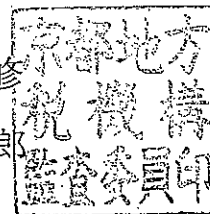 京都地方
税機構
監査委員印
修
郎